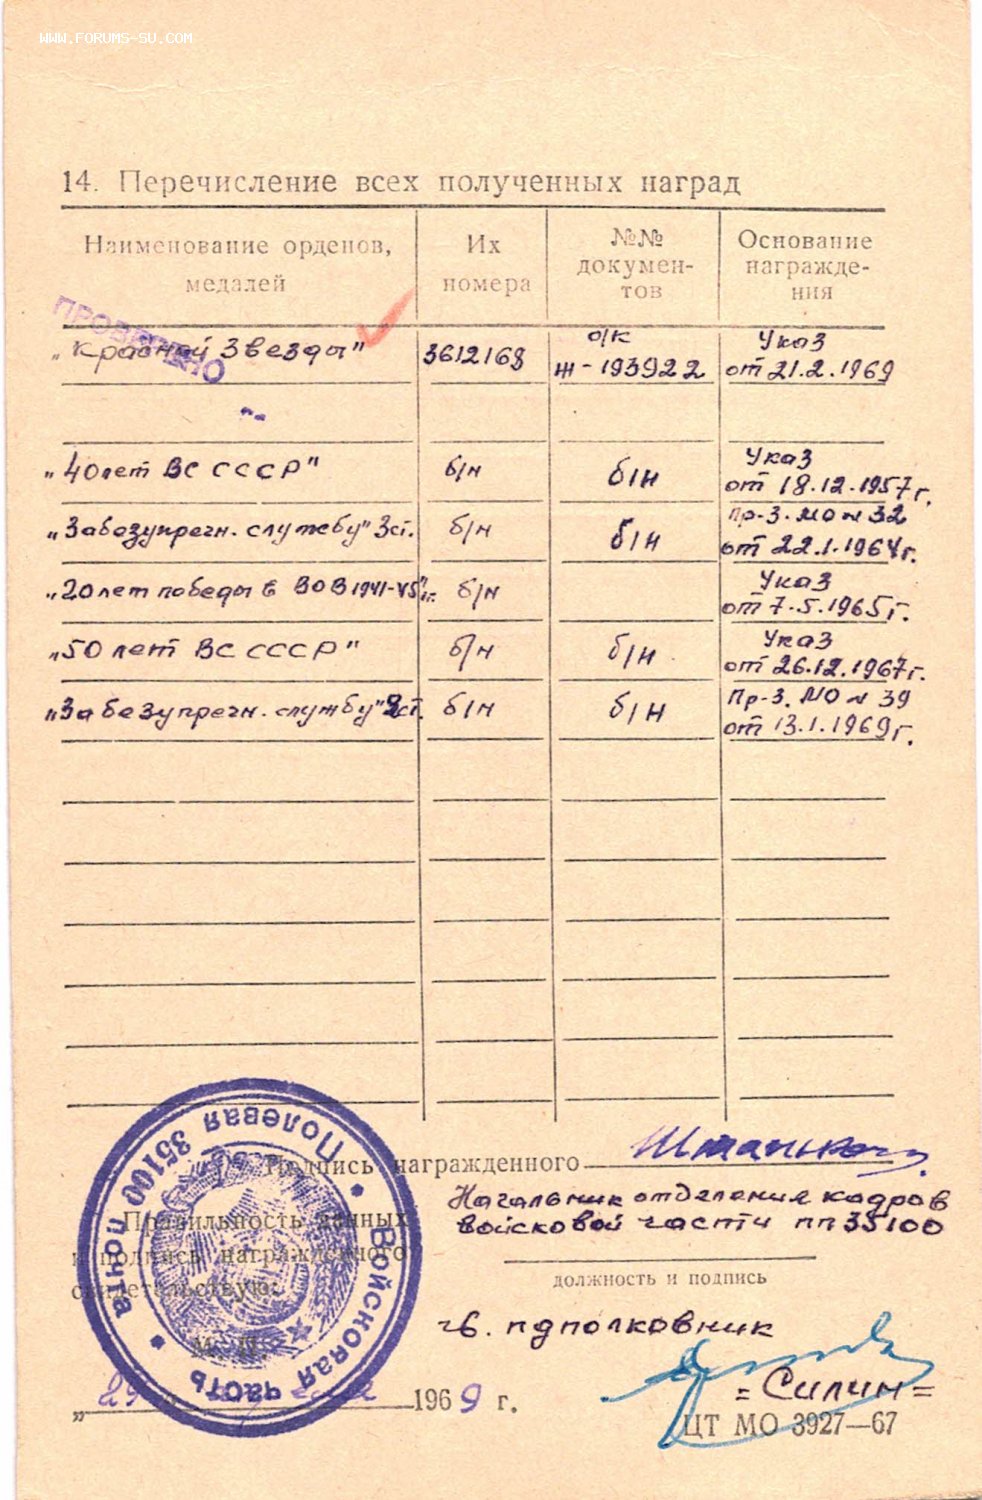 WWW.FORUMS-SU.COM
14. Перечисление всех полученных наград
Наименование орденов, медалей | Их номера | №№ докумен-тов | Основание награжде-ния
ПРОВЕРЕНО
„Красной Звезды" | 3612168 | о/к ж-193922 | Указ от 21.2.1969
„40 лет ВС СССР" | б/н | б/н | Указ от 18.12.1957г.
„За безупречн. службу" 3ст. | б/н | б/н | Пр-з. МО № 32 от 22.1.1964г.
„20 лет победы в ВОВ 1941-45"гг. | б/н | Указ от 7.5.1965г.
„50 лет ВС СССР" | б/н | б/н | Указ от 26.12.1967г.
„За безупречн. службу" 2ст. | б/н | б/н | Пр-з. МО № 39 от 13.1.1969г.
Подпись награжденного
Начальник отделения кадров
войсковой части пп 35100
должность и подпись
Правильность данных
и подпись награжденного
свидетельствую:
М. П.
гв. пдполковник
=Силин=
„29" 1969 г.
ЦТ МО 3927—67
Войсковая часть • Полевая почта 35100 •